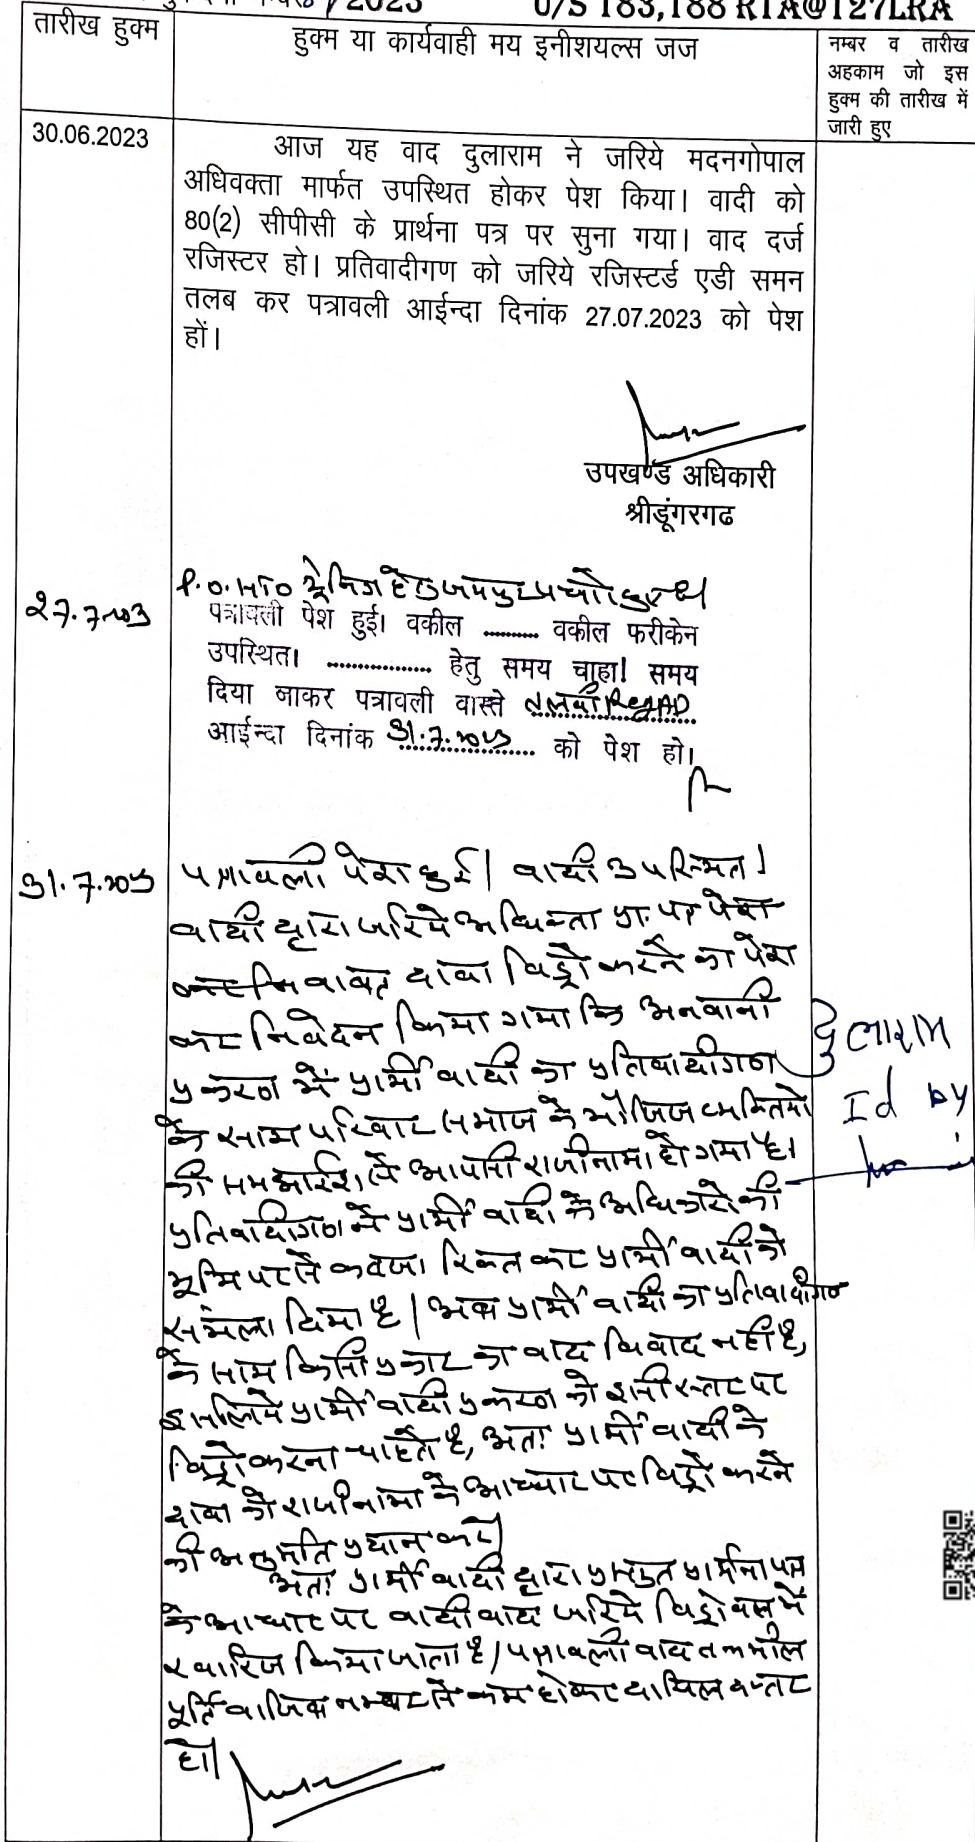 /2023 U/S 183,188 RTA@127LRA
तारीख हुक्म
हुक्म या कार्यवाही मय इनीशयल्स जज
नम्बर व तारीख
अहकाम जो इस
हुक्म की तारीख में
जारी हुए
30.06.2023
आज यह वाद दुलाराम ने जरिये मदनगोपाल
अधिवक्ता मार्फत उपस्थित होकर पेश किया। वादी को
80(2) सीपीसी के प्रार्थना पत्र पर सुना गया। वाद दर्ज
रजिस्टर हो। प्रतिवादीगण को जरिये रजिस्टर्ड एडी समन
तलब कर पत्रावली आईन्दा दिनांक 27.07.2023 को पेश
हों।
उपखण्ड अधिकारी
श्रीडूंगरगढ
27.7.2023
P.O. HTO ट्रेनिंग हेतु जयपुर
पत्रावली पेश हुई। वकील .......... वकील फरीकेन
उपस्थित। ................. हेतु समय चाहा! समय
दिया जाकर पत्रावली वास्ते तलबी RegAD
आईन्दा दिनांक 31.7.2023 को पेश हो।
31.7.2023
पत्रावली पेश हुई। वादी उपस्थित।
वादी द्वारा जरिये अधिवक्ता प्रा. पत्र पेश
बाबत् दावा विड्रो करने का पेश
कर निवेदन किया गया कि अनवानी
प्रकरण में प्रार्थी वादी का प्रतिवादीगण
के साथ परिवार समाज के मौजिज व्यक्तियो
की समझाईश से आपसी राजीनामा हो गया है।
प्रतिवादीगण ने प्रार्थी वादी के अधिकारो की
भूमि पर से कब्जा रिक्त कर प्रार्थी वादी को
संभला दिया है। अब प्रार्थी वादी का प्रतिवादीगण
के साथ किसी प्रकार का वाद विवाद नहीं है,
इसलिये प्रार्थी वादी प्रकरण को इसी स्तर पर
विड्रो करना चाहते है, अतः प्रार्थी वादी के
दावा को राजीनामा के आधार पर विड्रो करने
की अनुमति प्रदान करे।
अतः प्रार्थी वादी द्वारा प्रस्तुत प्रार्थना पत्र
के आधार पर वादी वाद जरिये विड्रोवल में
खारिज किया जाता है। पत्रावली बाद तकमील
पूर्ति वाजिब नम्बर से कम होकर दाखिल दफ्तर
हो।
दुलाराम
Id by